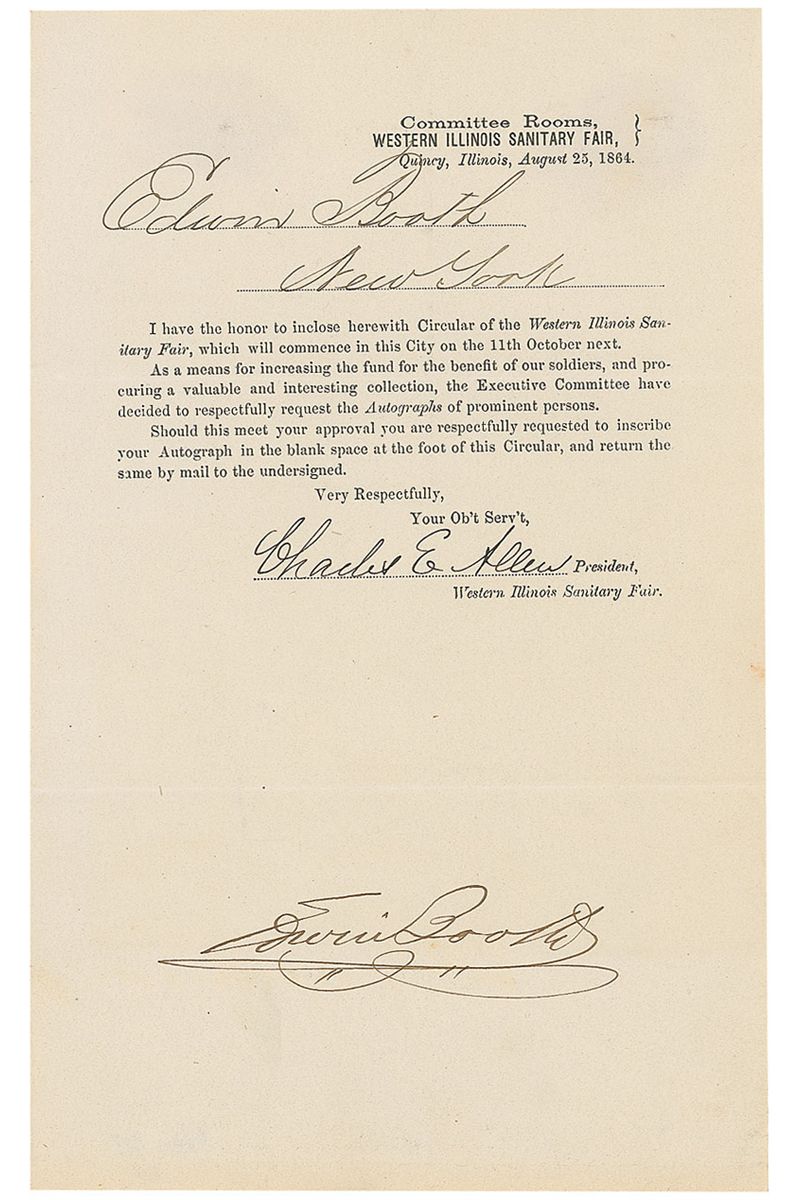 Committee Rooms, }
WESTERN ILLINOIS SANITARY FAIR,
Quincy, Illinois, August 25, 1864.
Edwin Booth
New York
I have the honor to inclose herewith Circular of the Western Illinois San-
itary Fair, which will commence in this City on the 11th October next.
As a means for increasing the fund for the benefit of our soldiers, and pro-
curing a valuable and interesting collection, the Executive Committee have
decided to respectfully request the Autographs of prominent persons.
Should this meet your approval you are respectfully requested to inscribe
your Autograph in the blank space at the foot of this Circular, and return the
same by mail to the undersigned.
Very Respectfully,
Your Ob't Serv't,
Charles E Allen President,
Western Illinois Sanitary Fair.
Edwin Booth